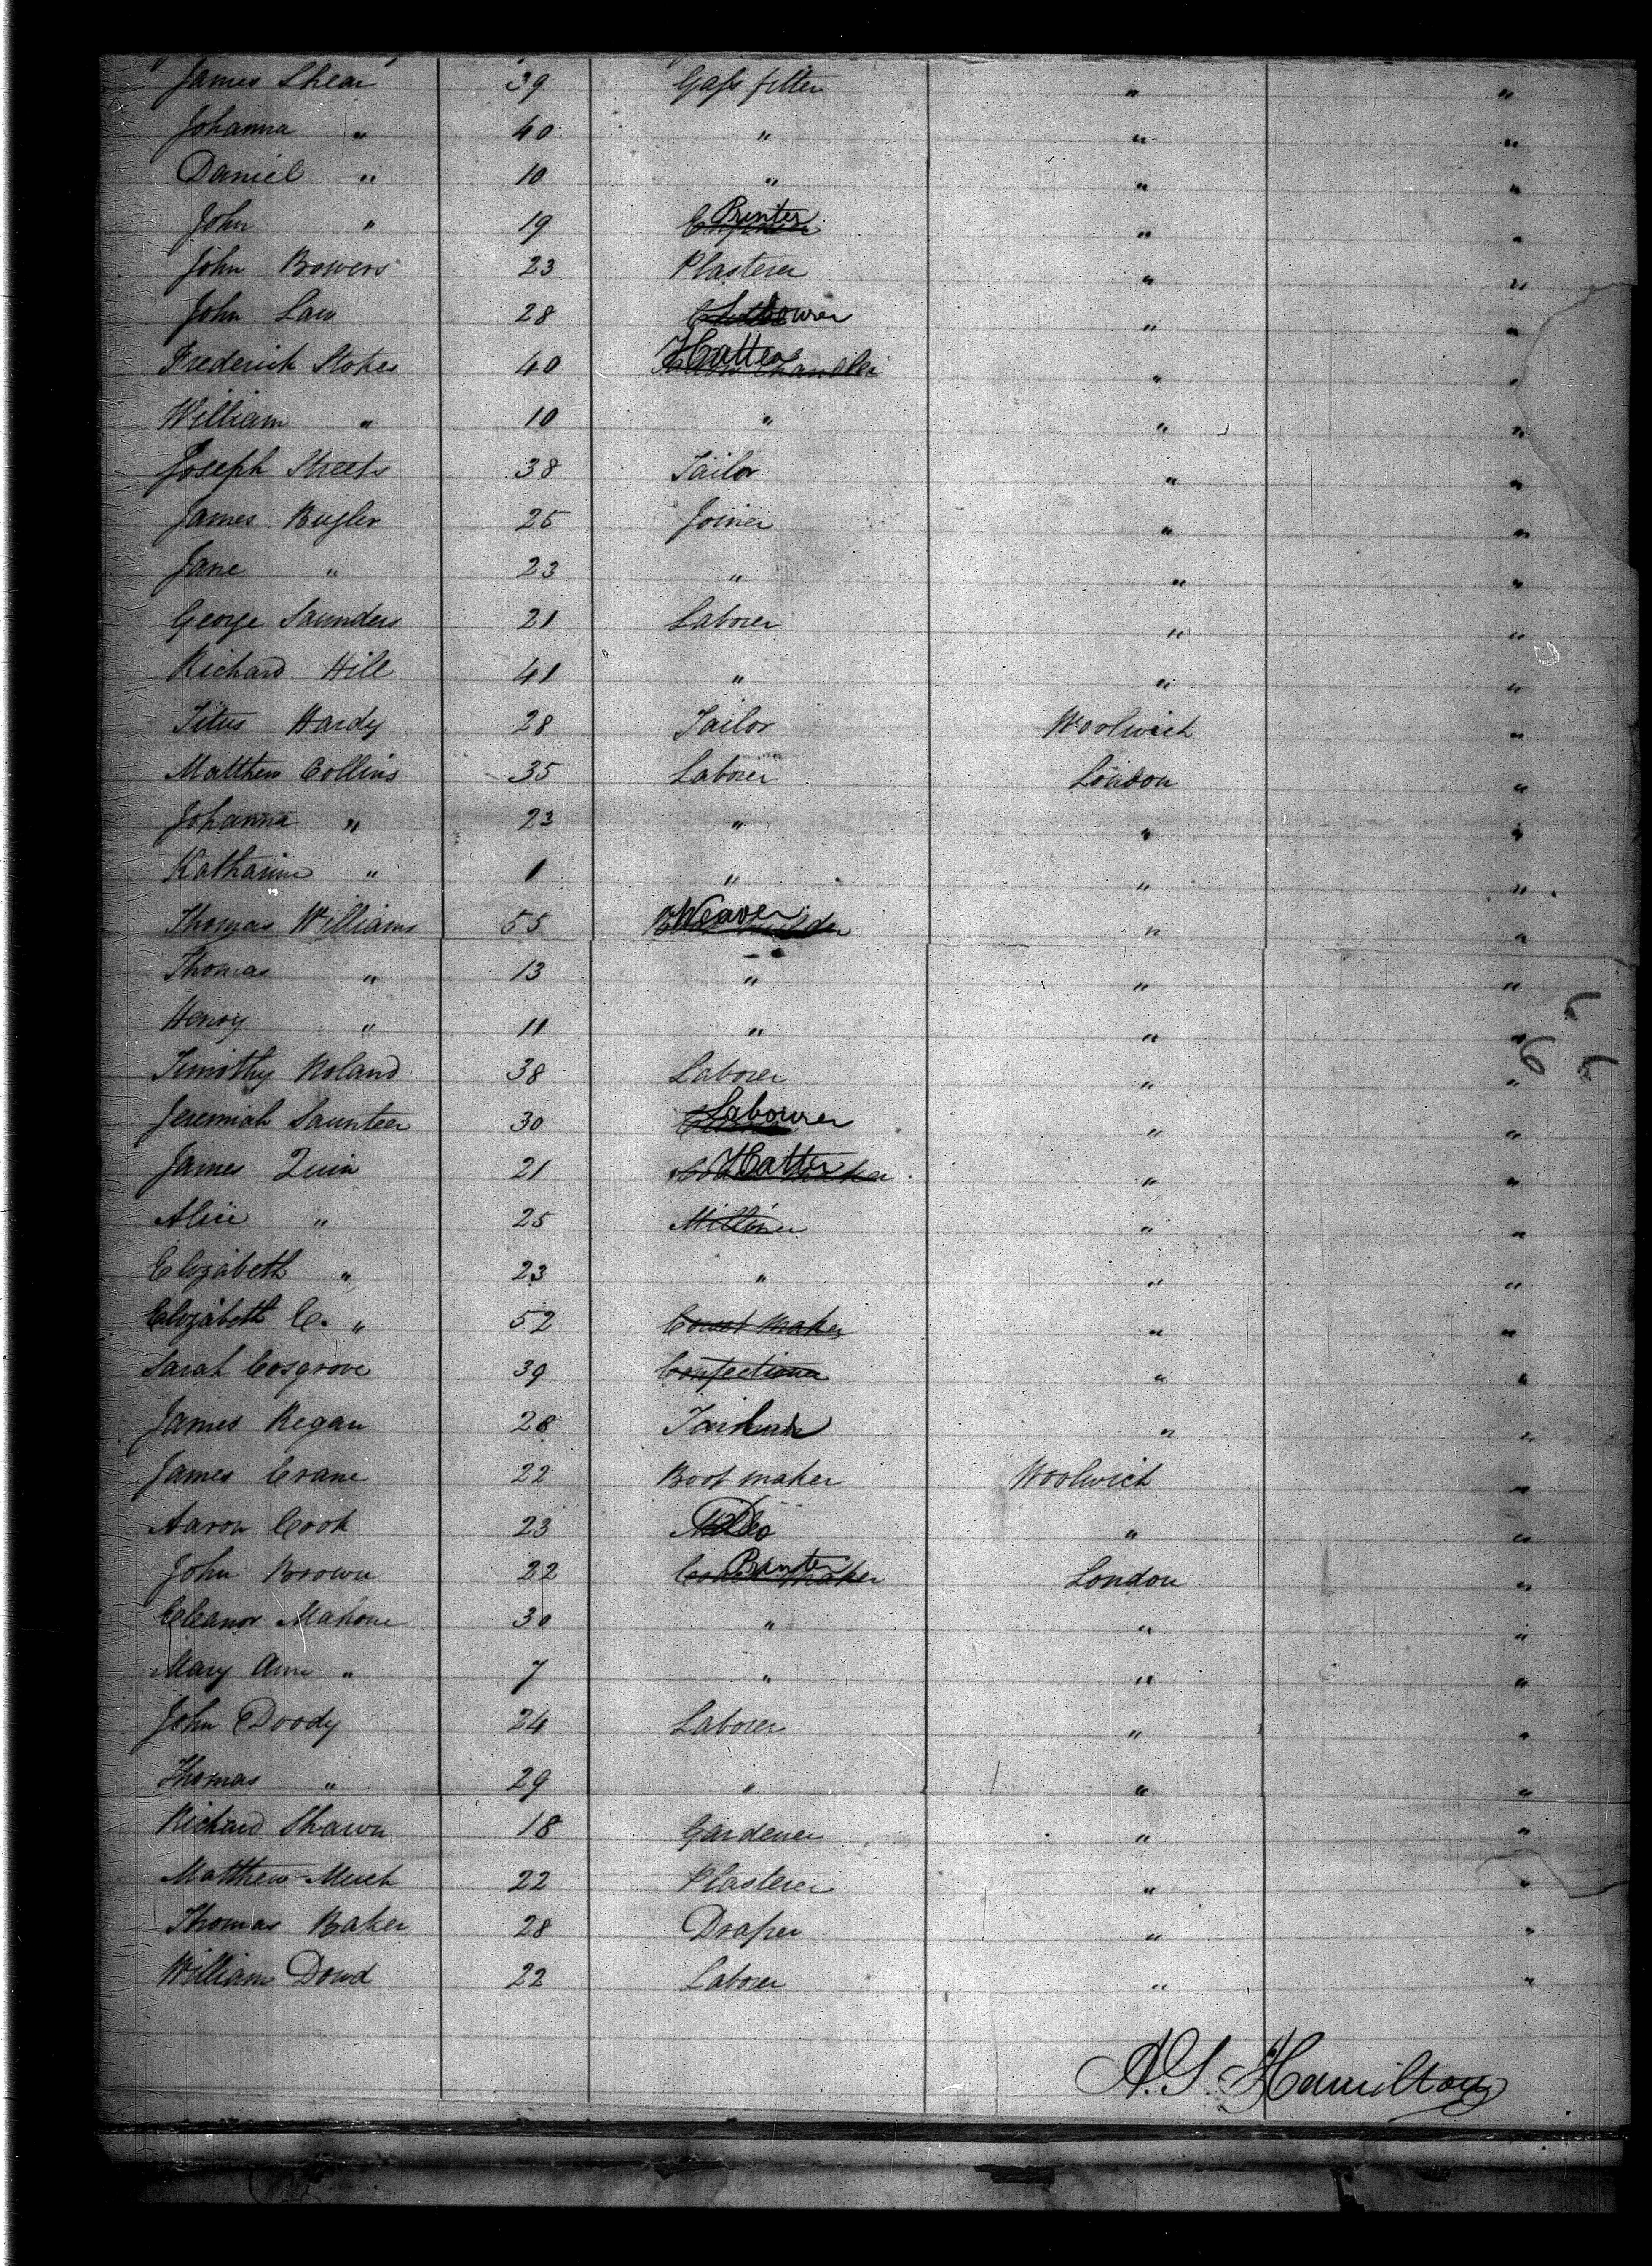 James Shear 39 Gass fitter " "
Johanna " 40 " " "
Daniel " 10 " " "
John " 19 Printer " "
John Bowers 23 Plasterer " "
John Law 28 Labourer " "
Frederick Stokes 40 Hatter Tallow Chandler " "
William " 10 " " "
Joseph Streets 38 Tailor " "
James Bugler 25 Joiner " "
Jane " 23 " " "
George Saunders 21 Laborer " "
Richard Hill 41 " " "
Titus Hardy 28 Tailor Woolwich "
Matthew Collins 35 Laborer London "
Johanna " 23 " " "
Katharine " 1 " " "
Thomas Williams 55 Weaver " "
Thomas " 13 " " "
Henry " 11 " " "
Timothy Noland 38 Laborer " "
Jeremiah Saunteer 30 Labourer " "
James Quin 21 Hatter maker " "
Alice " 25 Milliner " "
Elizabeth " 23 " " "
Elizabeth C. " 52 Corset maker " "
Sarah Cosgrove 39 Confectioner " "
James Regan 28 " "
James Crane 22 Boot maker Woolwich "
Aaron Cook 23 Do " "
John Brown 22 maker London "
Eleanor Mahone 30 " " "
Mary Ann " 7 " " "
John Doody 24 Laborer " "
Thomas " 29 " " "
Richard Shawn 18 Gardener " "
Matthew Much 22 Plasterer " "
Thomas Baker 28 Draper " "
William Dowd 22 Laborer " "
A. G. Hamilton